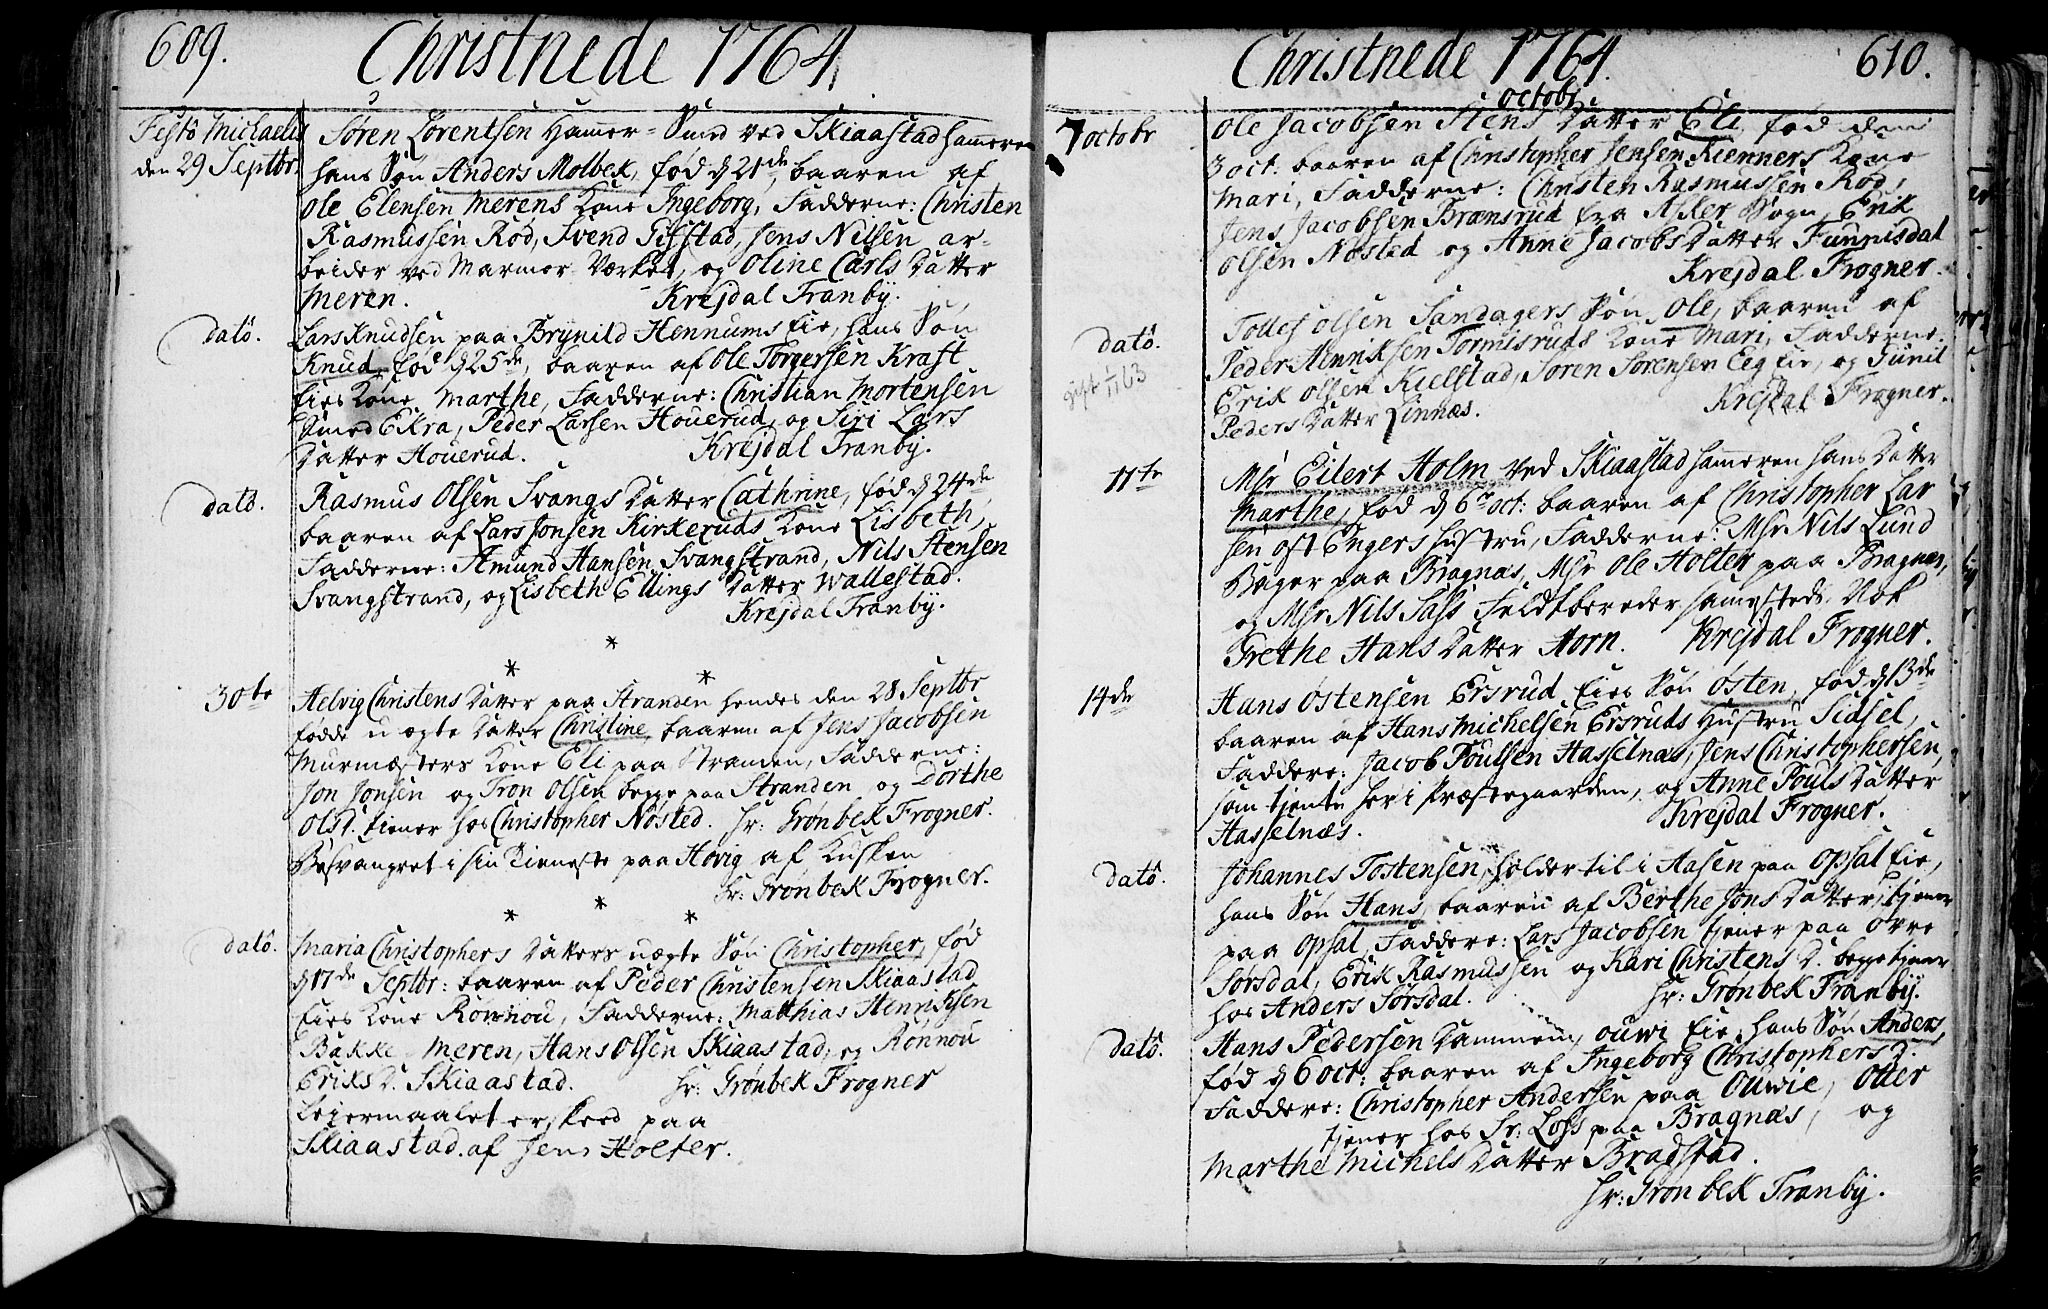 609.
Christnede 1764.
Festo Michaelis
den 29 Septbr.
Søren Lorentsen Hammer-Smed ved Skiaastad hammeren
hans Søn Anders Molbek, fød d 21de, baaren af
Ole Elensen Merens Kone Ingeborg, Fadderne: Christen
Rasmussen Rød, Svend Gifstad, Jens Nilsen ar-
beider ved Marmor Værket, og Oline Carls Datter
Meren. Krejdal Tranby.
Dato.
Lars Knudsen paa Brynild Hennums Eie, hans Søn
Knud, fød d 25de, baaren af Ole Torgersen Kraft
Eies Kone, Marthe, Fadderne: Christian Mortensen
Smed Ekra, Peder Larsen Houerud, og Siri Lars
Datter Houerud. Krejdal Tranby.
Dato.
Rasmus Olsen Svangs Datter Cathrine, fød d 24de
baaren af Lars Jonsen Kirkeruds Kone Lisbeth,
Fadderne: Amund Hansen Svangstrand, Nils Stensen
Svangstrand, og Lisbeth Ellings Datter Wallestad.
Krejdal Tranby.
* * *
30te
Helvig Christens Datter paa Stranden hendes den 28 Septbr
fødde u ægte Datter Christine, baaren af Jens Jacobsen
Murmesters Kone Eli paa Stranden, Fadderne:
Jon Jonsen og Tron Olsen begge paa Stranden og Dorthe
Ols D. tiener hos Christopher Nøsted. Hr: Grønbek Frogner.
Besvangret i sin Tieneste paa Hovig af Kusken
Hr: Grønbek Frogner.
* * *
Dato.
Maria Christophers Datters uægte Søn Christopher, fød
d 17de Septbr: baaren af Peder Christensen Skiaastad
Eies Kone Rønnou, Fadderne: Matthias Henriksen
Bakke Meren, Hans Olsen Skiaastad, og Rønnou
Eriks D. Skiaastad. Hr: Grønbek Frogner
Leiermaalet er skeed paa
Skiaastad af Jens Holter.
Christnede 1764.
610.
octobr
7 octobr
Ole Jacobsen Stens Datter Eli, fød den
3 oct: baaren af Christopher Jensen Rienners Kone
Mari, Fadderne: Christen Rasmussen Rød,
Jens Jacobsen Brænsrud fra Asker Sogn, Erik
Olsen Nøsted og Anne Jacobs Datter Funnisdal
Krejdal Frogner.
Dato.
Tollef Olsen Sandagers Søn, Ole, baaren af
Peder Henriksen Tormisruds Kone Mari, Fadderne:
Erik Olsen Kielstad, Søren Sørensen Eeg Eie, og Gunil
Peders Datter Linnæs. Krejdal Frogner.
11te
Msr Eilert Holm ved Skiaastad hammeren hans Datter
Marthe, fød d 6te oct: baaren af Christopher Lar
sen oft Engers Hustru, Fadderne: Msr Nils Lund
Bager paa Bragnæs, Msr Ole Holter paa Bragnæs,
og Msr Nils Sass Feldtbereder samesteds. Nok
Grethe Hans Datter Horn. Krejdal Frogner.
14de
Hans Østensen Ersrud Eies Søn Østen, fød d 13de
baaren af Hans Michelsen Ersruds Hustru Sidsel,
Faddere: Jacob Poulsen Hasselnæs, Jens Christophersen,
som tjente her i Præstegaarden, og Anne Pouls Datter
Hasselnæs. Krejdal Frogner.
Dato.
Johannes Tostensen, holder til i Aasen paa Opsal Eie,
hans Søn Hans, baaren af Berthe Jons Datter, tjener
paa Opsal, Faddere: Lars Jacobsen tjener paa Øvre
Sørsdal, Erik Rasmussen og Kari Christens D. begge tjener
hos Anders Sørsdal. Hr: Grønbek Tranby.
Dato.
Hans Pedersen Dammen, Ouwi Eie, hans Søn Anders,
fød d 6 oct: baaren af Ingeborg Christophers D.
Faddere: Christopher Andersen paa Ouwie, Otter
tjener hos Sr: Loss paa Bragnæs, og
Marthe Michels Datter Bradstad.
Hr: Grønbek Tranby.